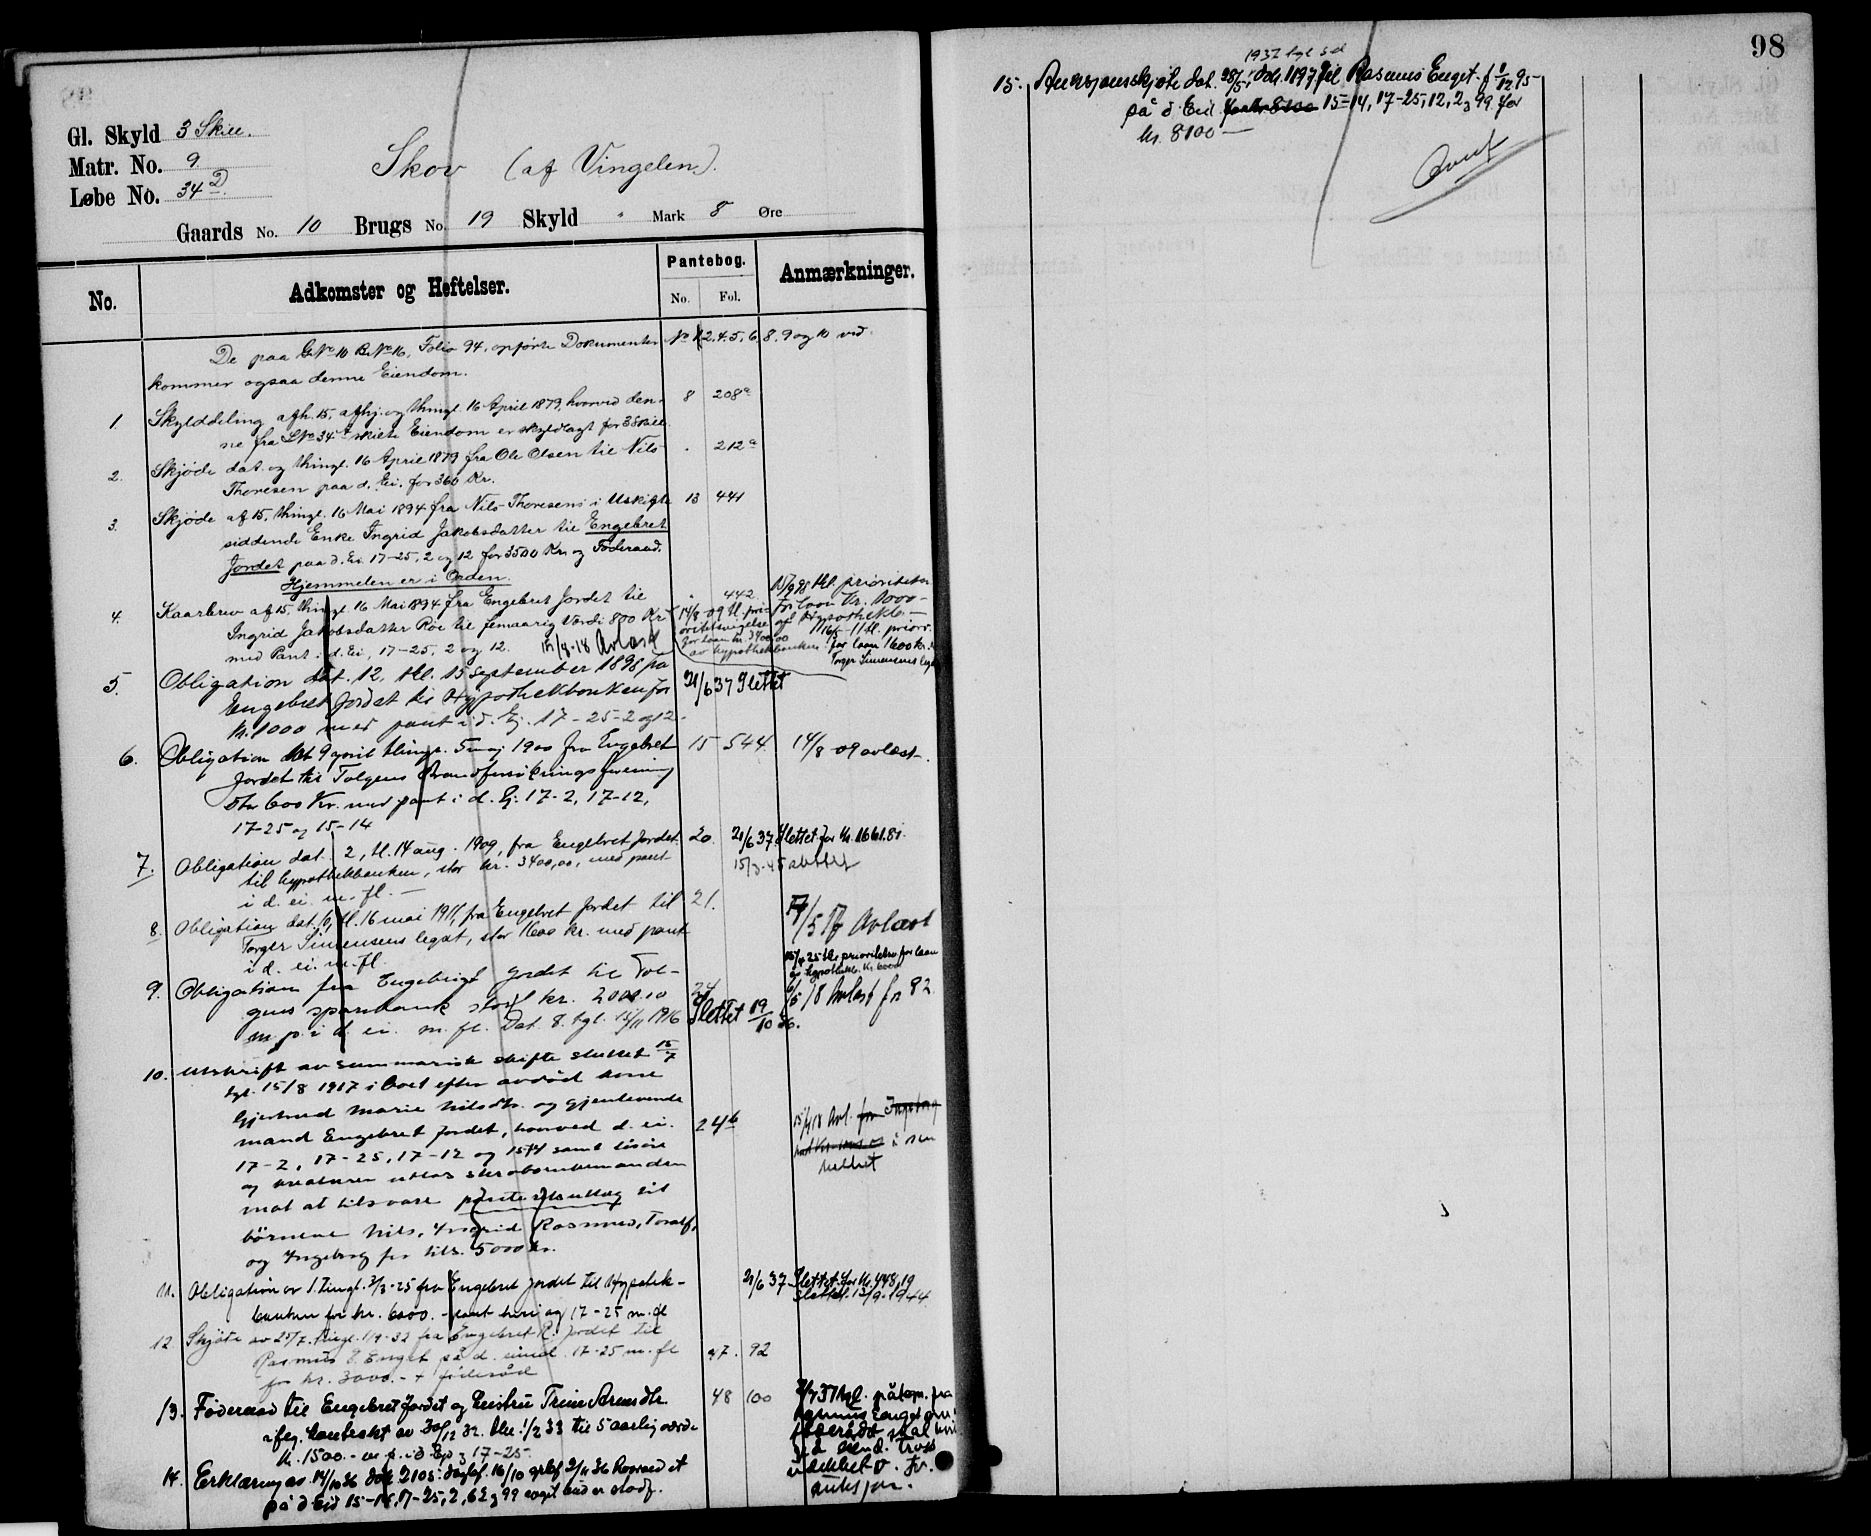 98
Gl. Skyld 3 Skill.
Matr. No. 9
Løbe No. 34 D
Skov (af Vingelen).
Gaards No. 10 Brugs No. 19 Skyld " Mark 8 Øre
No. Adkomster og Heftelser. Pantebog. Anmærkninger.
No. Fol.
De paa G.No 10 B.No 16, Folio 94, opførte Dokumenter No 1, 2, 4, 5, 6, 8, 9 og 10 ved-
kommer ogsaa denne Eiendom.
1. Skylddeling afh. 15, afhj. og thingl. 16 April 1879, hvorved den- 8 208a
ne fra LNo 34 skilte Eiendom er skyldlagt for 3 Skill.
2. Skjøde dat. og thingl. 16 April 1879 fra Ole Olsen til Nils " 212a
Thoresen paa d. Ei. for 360 Kr.
3. Skjøde af 15, thingl. 16 Mai 1894 fra Nils Thoresens i Uskifte 13 441
siddende Enke Ingrid Jakobsdatter til Engebret
Jordet paa d. Ei. 17-25, 2 og 12 for 3500 Kr. og Føderaad.
Hjemmelen er i Orden.
4. Kaarbrev af 15, thingl. 16 Mai 1894 fra Engebret Jordet til " 442
Ingrid Jakobsdatter Røe til femaarig Værdi 800 Kr.
med Pant i d. Ei, 17-25, 2 og 12. 15/4-18 Avlæst
14/8-09 tl. pri-
oritetsvigelse
for laan kr. 3400,00
av hypothekbanken
15/9 98 thl. prioritetsv.
for laan Kr. 1000-
af Hypothekb. -
16/5-11 tl. priorv.
for laan 1600 kr.
Torger Simensens legat
5. Obligation dat. 12, thl. 15 september 1898 fra 21/6 37 Slettet
Engebret Jordet til Hypothekbanken for
kr. 1000 med pant i d. Ej. 17-25-2 og 12-
6. Obligation dat 9 april thingl. 5 maj 1900 fra Engebret 15 544 14/8 09 avlæst.
Jordet til Tolgens Brandforsikringsforening
stor 600 Kr. med pant i d. Ej. 17-2, 17-12,
17-25 og 15-14
7. Obligation dat. 2, tl. 14 aug. 1909, fra Engebret Jordet 20 21/6 37 Slettet for kr. 1661.81.
til hypothekbanken, stor kr. 3400,00, med pant 15/3-45 slettet
i d. ei. m. fl. -
8. Obligation dat. 10, tl. 16 mai 1911, fra Engebret Jordet til 21.
Torger Simensens legat, stor 1600 kr. med pant Avlæst
i d. ei. m. fl.
9. Obligation fra Engebrigt Jordet til Tol- 24
gens sparebank stor kr. 2000.00 Slettet 19/10 36.
m. p. i d. ei. m. fl. Dat. 8. tgl. 15/11 1916
prioritetsv. for laan
Avlæst
10. Utskrift av summarisk skifte sluttet 15/7
tgl. 15/8 1917 i boet efter avdød kone
Gjertrud Marie Nilsdtr. og gjenlevende
mand Engebret Jordet, hvorved d. ei. 24b 15/4 18 Avl. for Ingeborg
17-2, 17-25, 17-12 og 15-14 samt løsøre
og kreaturer
mot at tilsvare
børnene Nils, Ingrid, Rasmus, Toralf,
og Ingeborg for tils. 5000 kr.
11. Obligation av 1. tingl. 2/3-25 fra Engebret Jordet til Hypotek- 21/6 37 Slettet for kr. 448,19
banken for kr. 6000.- pant heri og 17-25 m. fl Slettet 15/9-1944
12. Skjøte av 25/7. tingl. 1/9-32 fra Engebret R. Jordet til
Rasmus E. Enget på d. eiend. 17-25 m. fl 47. 92
for kr. 3000.- + føderåd
13. Føderaad til Engebret Jordet og hustru Trine Arendtr. 48 100
iføg. kontrakt av 30/12 32. thl. 1/2 33 til 5 aarlig værdi
kr. 1500.- m. p. i d. Eje og 17-25-
14. Erklæring av 14/10 36 dok 2105. dagbf. 16/10 hvorved et
på d Eid 15-14, 17-25, 2, 62 og 99
auksjon.
15. Auksjonsskjøte dat. 28/5, 1937 tgl. s. d. dok. 1197 til Rasmus Enget f. 1/12 95
på d. Eid. for kr 8100 15-14, 17-25, 12, 2 og 99 for
kr. 8100-